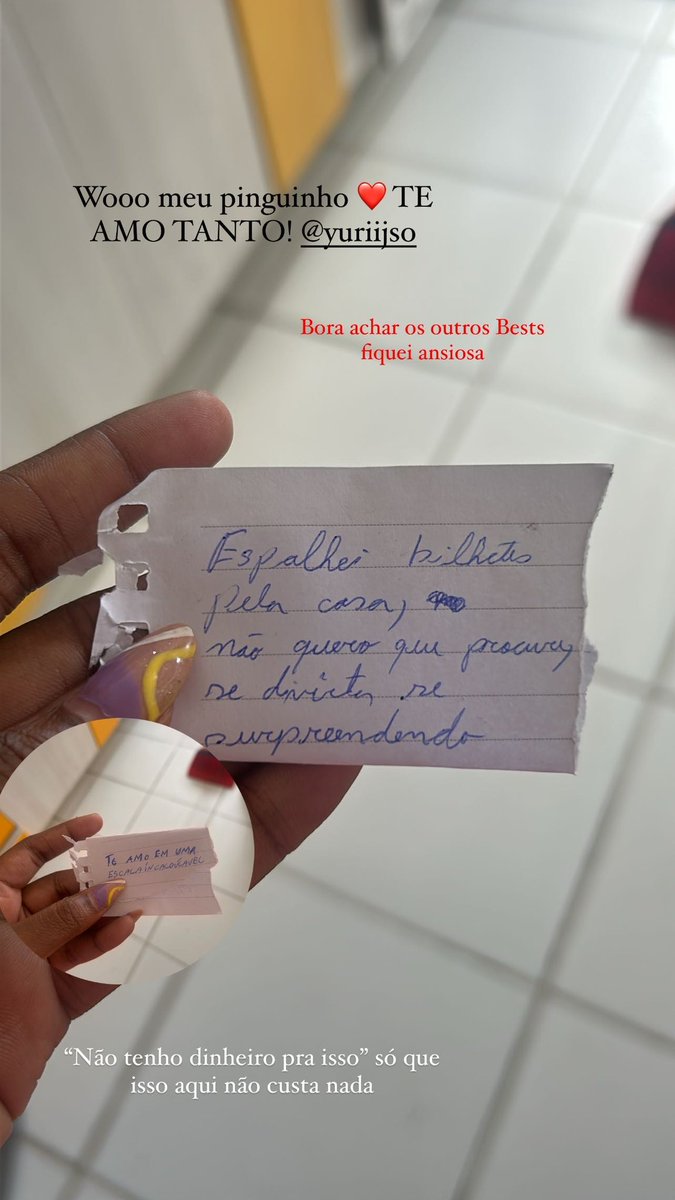 Wooo meu pinguinho ❤️ TE
AMO TANTO! @yuriijso
Bora achar os outros Bests
fiquei ansiosa
Espalhei bilhetes
pela casa,
não quero que procure,
se divirta se
surpreendendo
TE AMO EM UMA
ESCALA INCALCULÁVEL
“Não tenho dinheiro pra isso” só que
isso aqui não custa nada